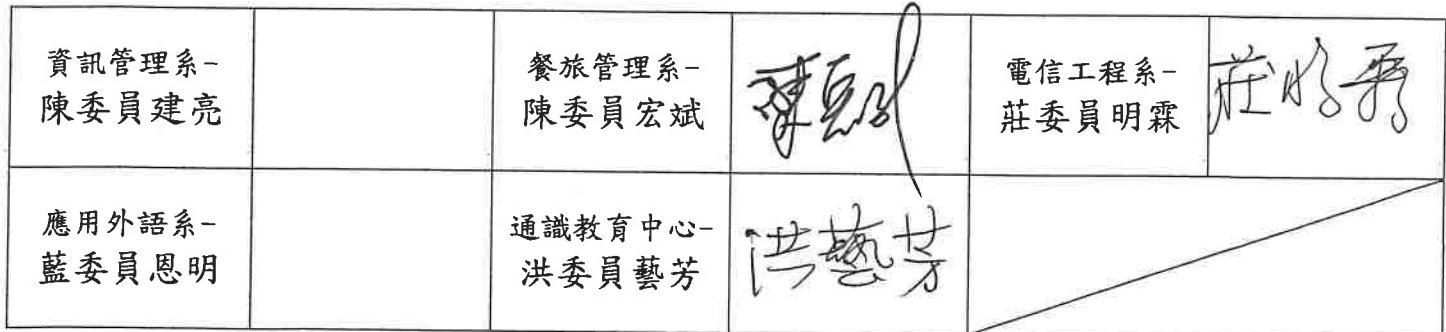 資訊管理系-
陳委員建亮
餐旅管理系-
陳委員宏斌
電信工程系-
莊委員明霖
莊明霖
應用外語系-
藍委員恩明
通識教育中心-
洪委員藝芳
洪藝芳